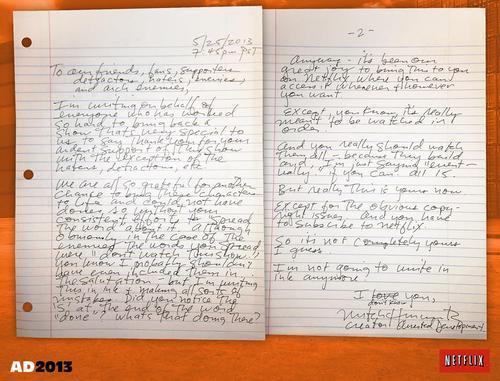 5/25/2013
7:45pm PST
To our friends, fans, supporters,
detractors, haters, enemies,
and arch enemies,
I'm writing on behalf of
everyone who has worked
so hard to bring back a
show that's very special to
us to say thank you for your
ardent support of the show
with the exception of the
haters, detractors, etc.
We are all so grateful for another
chance to bring these characters
to life and could not have
dones so without your
consistent effort to spread
the word about it. Although
obviously in the case of the
enemies the words you spread
were "don't watch this show."
you know I probably shouldn't
have even included them in
the salutation - but I'm writing
this in ink & making all sorts of
mistakes. Did you notice the
s at the end of the word
"done"? What's that doing there?
- 2 -
Anyway - it's been our
great joy to bring this to you
on Netflix where you can
access it whenever & however
you want.
Except, you know it's really
meant to be watched in
order.
And you really should watch
them all - because they build
and I'm just saying eventually
if you can. all 15.
But really this is yours now
Except for the obvious copy-
right issues. And you have
to subscribe to Netflix.
So it's not completely yours
I guess.
I'm not going to write in
ink anymore.
I love you,
don't know
Mitch Hurwitz
Creator Arrested Development
AD2013
NETFLIX